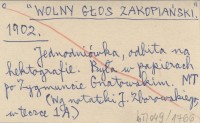 "WOLNY GŁOS ZAKOPIAŃSKI"
1902.
Jednodniówka, odbita na
hektografie. Była w papierach
po Zygmuncie Gnatowskim. MT
(Wg notatki J. Zborowskiego
w teczce IA)